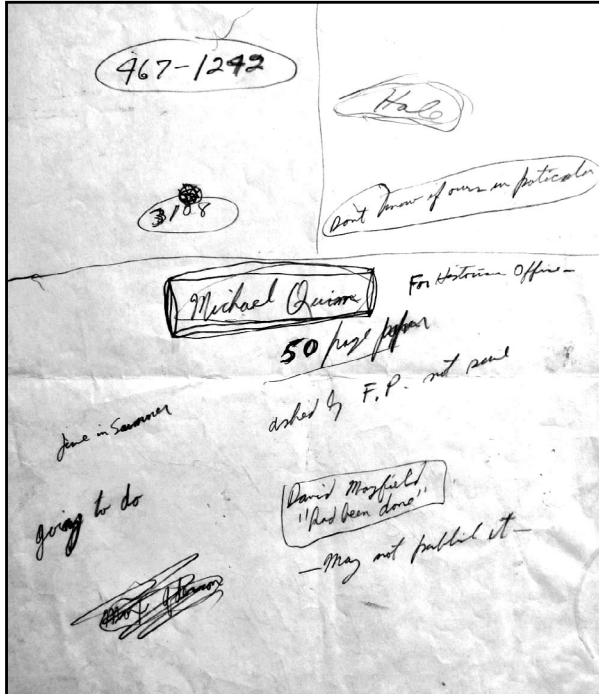 467-1242
Hale
3108
Dont know if ours in paticular
Michael Quinn
For Historian Office -
50 page paper
asked by F.P. not paid
in Summer
going to do
David Mayfield
"had been done"
- May not publish it -